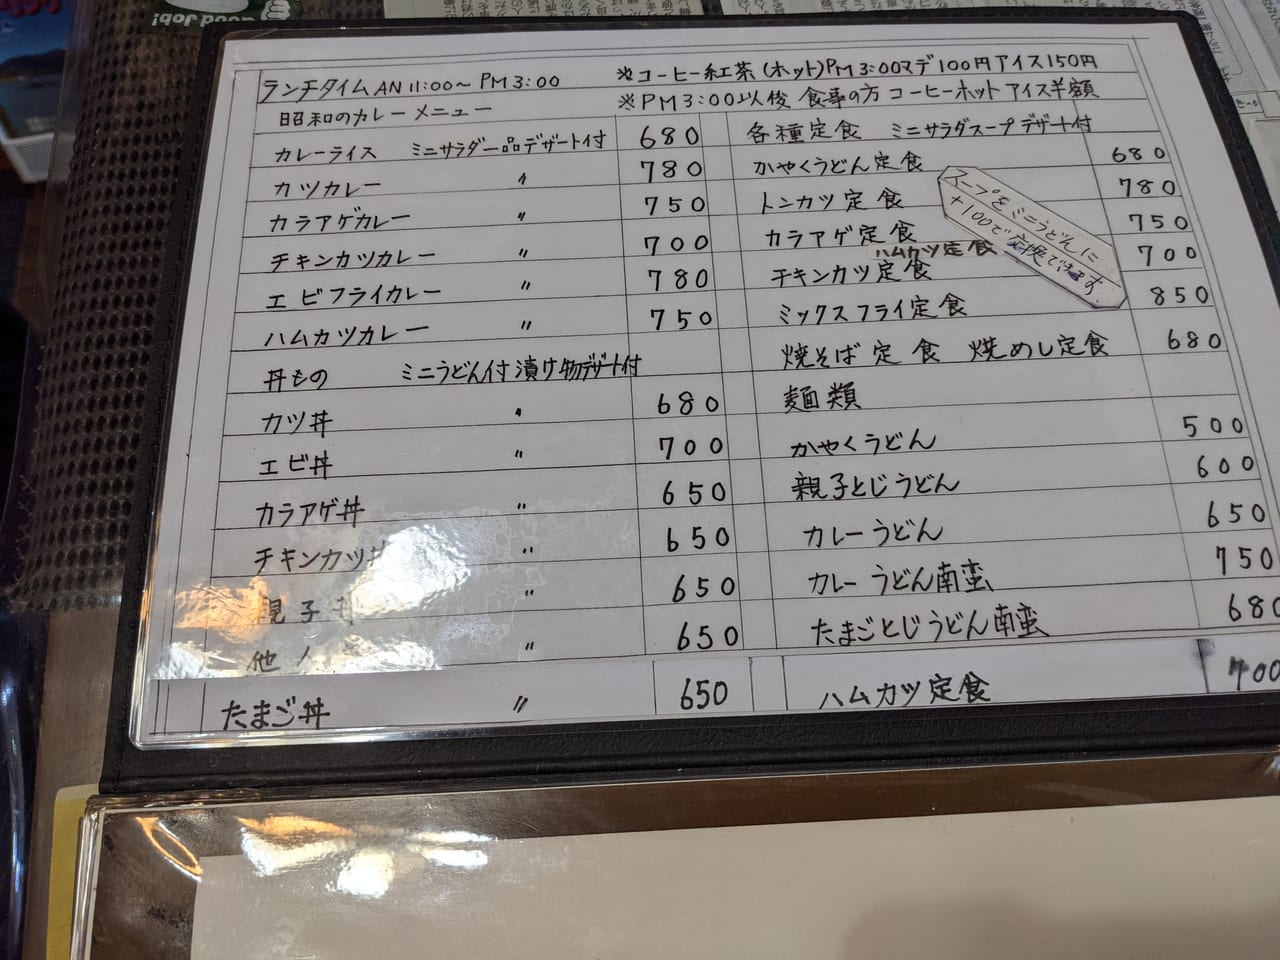 Good Job!
ランチタイム AN 11:00～ PM 3:00
※コーヒー紅茶(ホット)PM 3:00マデ 100円アイス150円
※PM 3:00以後 食事の方 コーヒーホット アイス半額
昭和のカレー メニュー
カレーライス ミニサラダー品デザート付 680
カツカレー 〃 780
カラアゲカレー 〃 750
チキンカツカレー 〃 700
エビフライカレー 〃 780
ハムカツカレー 〃 750
丼もの ミニうどん付 漬け物デザート付
カツ丼 〃 680
エビ丼 〃 700
カラアゲ丼 〃 650
チキンカツ丼 〃 650
親子丼 〃 650
他人 〃 650
たまご丼 〃 650
各種定食 ミニサラダスープデザート付
かやくうどん定食 680
トンカツ定食 780
カラアゲ定食 750
ハムカツ定食
チキンカツ定食 700
ミックスフライ定食 850
焼そば定食 焼めし定食 680
スープをミニうどんに
+100で交換できます。
麺類
かやくうどん 500
親子とじうどん 600
カレーうどん 650
カレーうどん南蛮 750
たまごとじうどん南蛮 680
ハムカツ定食 700